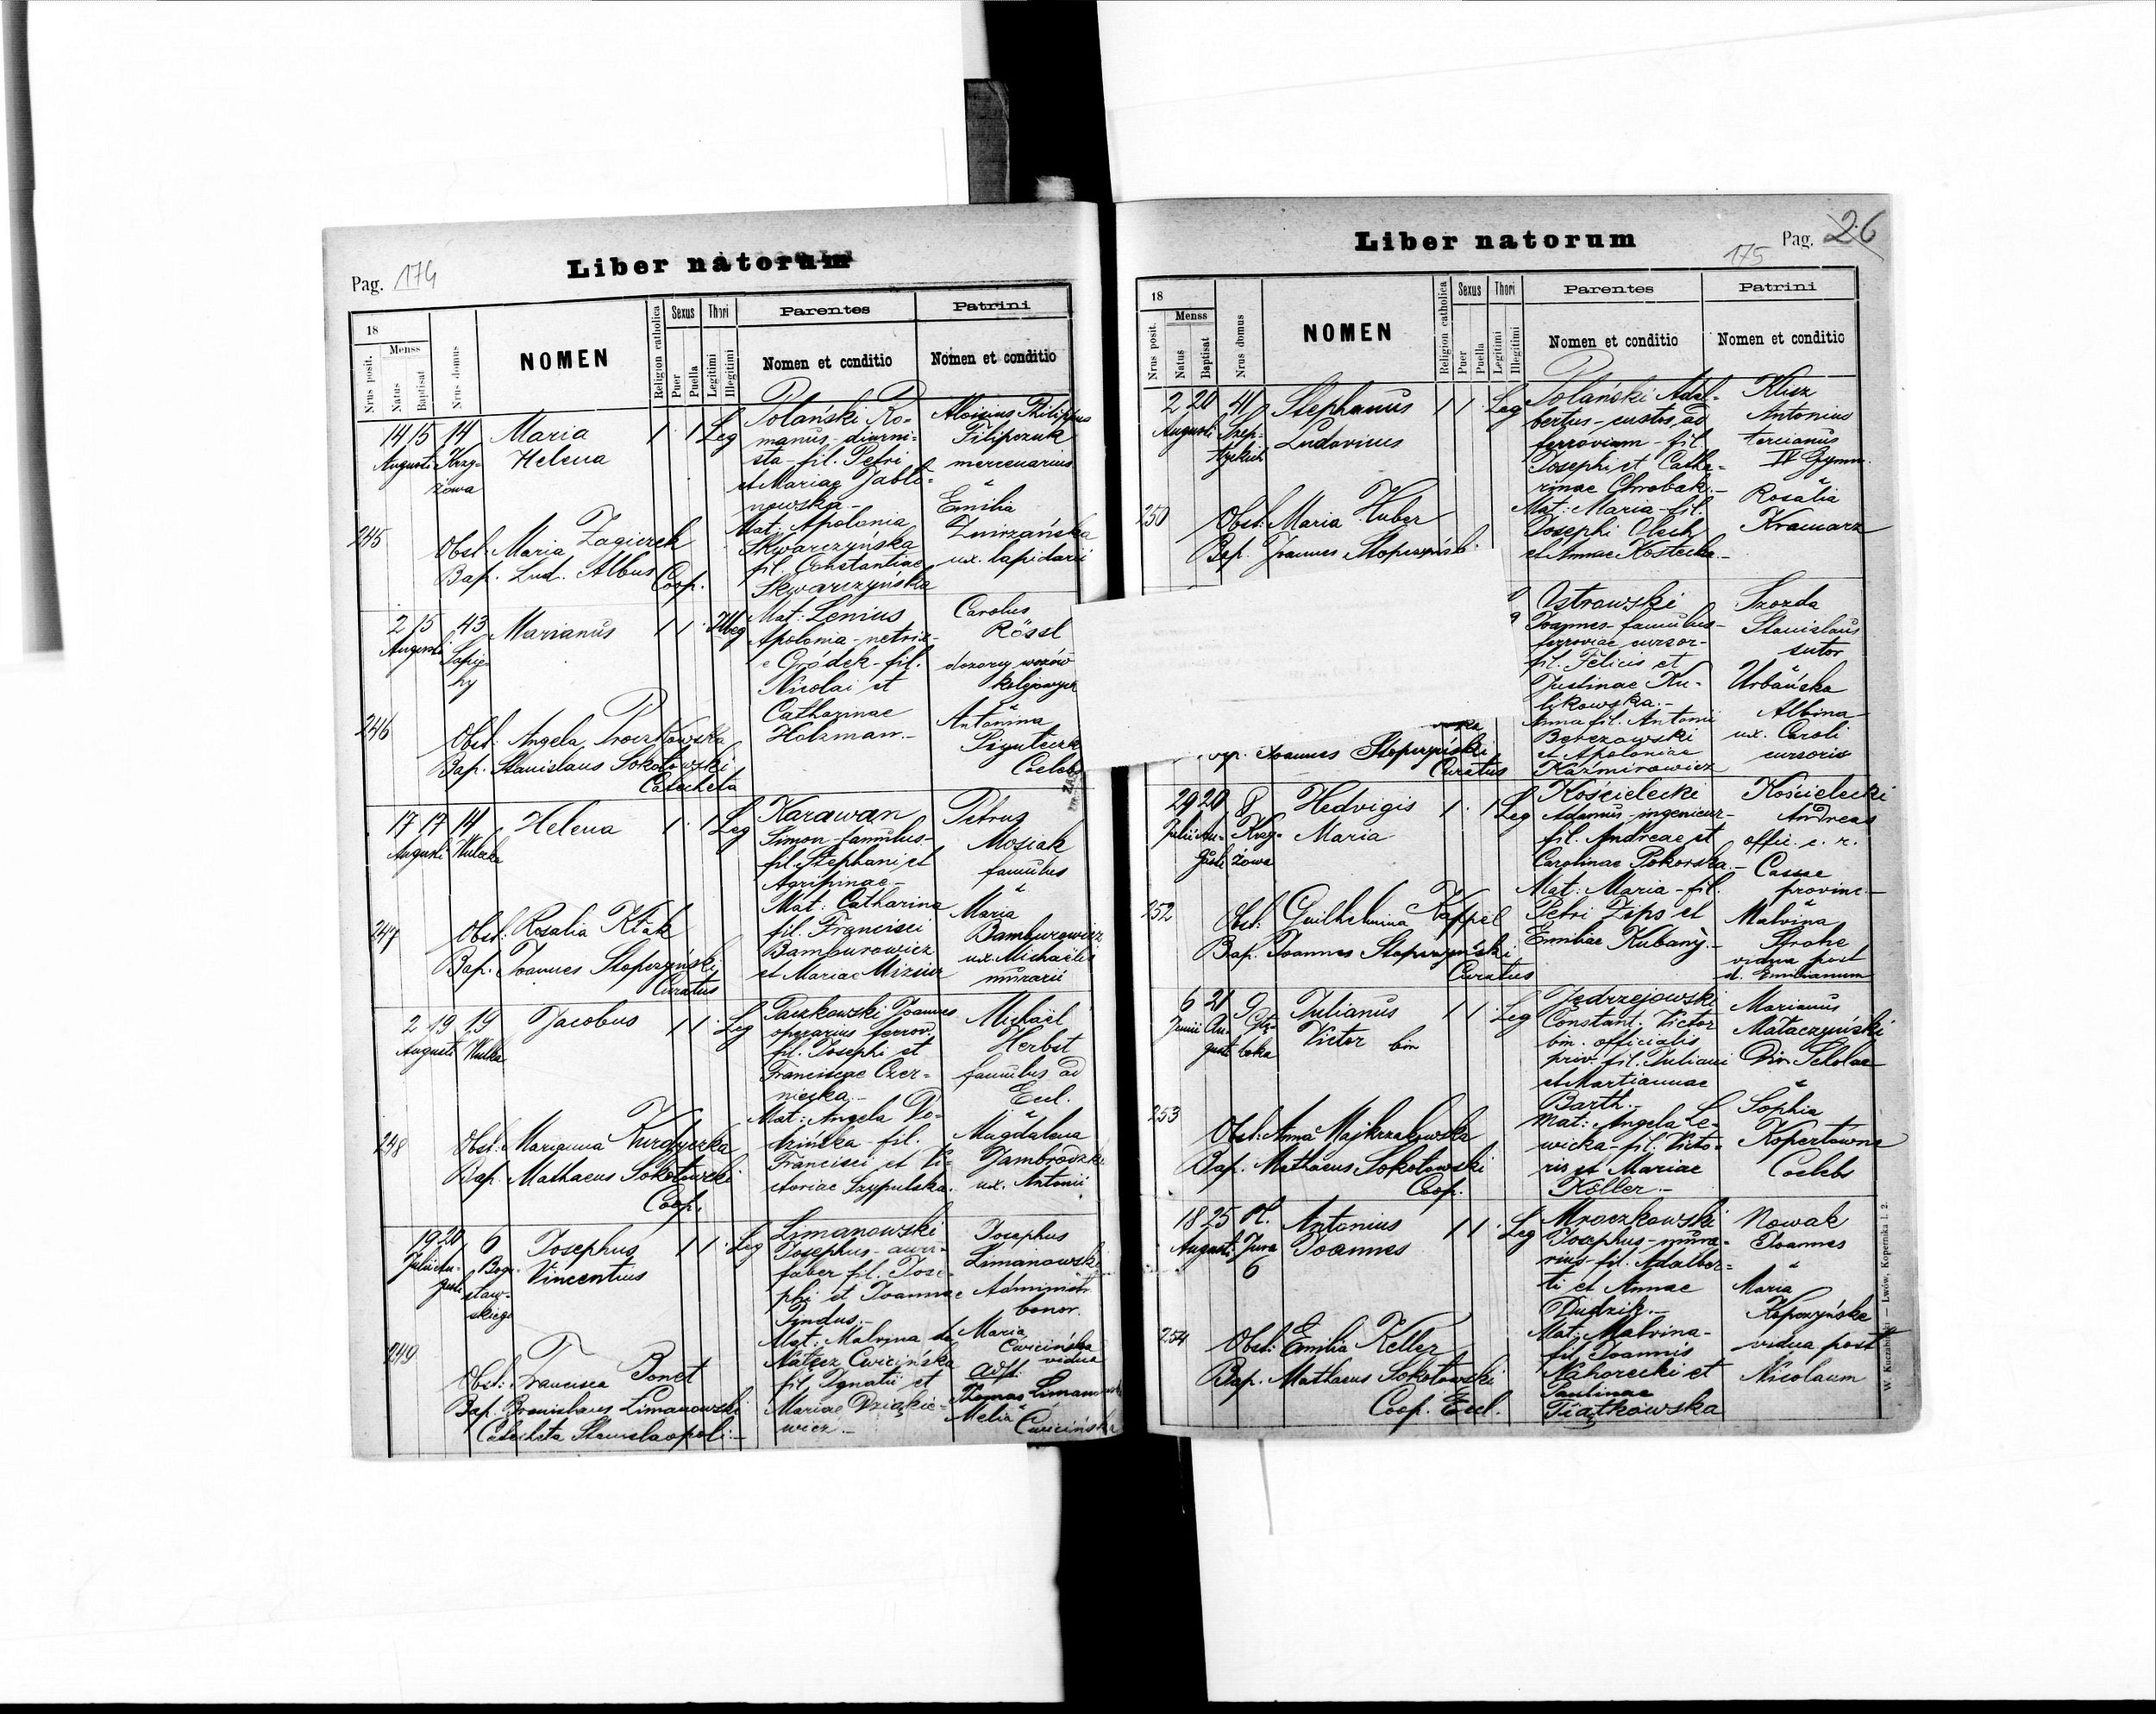 Pag. 174
Liber natorum
18
Menss
Nrus posit.
Natus
Baptisat
Nrus domus
NOMEN
Religion catholica
Sexus
Puer
Puella
Thori
Legitimi
Illegitimi
Parentes
Nomen et conditio
Patrini
Nomen et conditio
14 15 14
Augusti Krzy-
żowa
Maria
Helena
1 1 Leg
Polański Ro-
manus - diurni-
sta - fil. Petri
et Mariae Jabło-
nowska -
Mat: Apolonia
Skwarczyńska
fil. Constantiae
Skwarczyńska
Aloisius Philippus
Filipczuk
mercenarius
Emilia
Żmirzańska
ux. lapidarii
245
Obst: Maria Zagierek
Bap. Lud. Albus Coop.
2 15 43
Augusti Sapie-
hy
Marianus
1 1 Illeg
Mat: Lenius
Apolonia - netrix
e Gródek - fil.
Nicolai et
Catharinae
Holzman -
Carolus
Rössl
dozorcy wozów
kolejowych
Antonina
Coelebs
246
Obst: Angela Proczkowska
Bap. Stanislaus Sokołowski
Catecheta
17 17 14
Augusti Wulecka
Helena
1 1 Leg
Karawan
Simon - famulus -
fil. Stephani et
Agripinae -
Mat: Catharina
fil. Francisci
Bamburowicz
et Mariae Mizier
Petrus
Mosiak
famulus
Maria
Bamburowicz
ux. Michaelis
murarii
247
Obst: Rosalia Ktak
Bap. Joannes Stopczyński
Curatus
2 19 19
Augusti Wulka
Jacobus
1 1 Leg
Paczkowski Joannes
operarius ferrov.
fil. Josephi et
Franciscae Czer-
nieska -
Mat: Angela Do-
dzińska - fil.
Francisci et Vi-
ctoriae Szypulska.
Michaël
Herbst
famulus ad
Eccl.
Magdalena
ux. Antonii
248
Obst: Marianna Kurdyczka
Bap. Mathaeus Sokołowski
Coop.
19 20 6
Julii Au-
gusti
Bogu-
sław-
skiego
Josephus
Vincentius
1 1 Leg
Limanowski
Josephus - auri-
faber fil. Jose-
phi et Joannae
Pindus. -
Mat: Malvina de
Nałęcz Cwicińska
fil. Ignatii et
Mariae Dziakie-
wicz. -
Josephus
Limanowski
Administr.
bonor.
Maria
Cwicińska
vidua
adst.
Thomas Limanowski
Melia
Cwicińska
249
Obst: Francisca Bonet
Bap. Bronislaus Limanowski
Catecheta Stanislaopoli -
Liber natorum
175
Pag. 26
18
Menss
Nrus posit.
Natus
Baptisat
Nrus domus
NOMEN
Religion catholica
Sexus
Puer
Puella
Thori
Legitimi
Illegitimi
Parentes
Nomen et conditio
Patrini
Nomen et conditio
2 20 41
Augusti Szep-
tyckich
Stephanus
Ludovicus
1 1 Leg
Polański Adal-
bertus - custos ad
ferroviam - fil.
Josephi et Catha-
rinae Chrobak. -
Mat: Maria - fil.
Josephi Olech
et Annae Kostecka. -
Klisz
Antonius
tercianus
IV Gymn.
Rosalia
Kramarz
250
Obst: Maria Huber
Bap. Joannes Stopczyński
Ostrowski
Joannes - famulus -
ferroviae cursor -
fil. Felicis et
Justinae Ku-
likowska. -
Anna fil. Antonii
Berezowski
et Apoloniae
Kaźmirowicz
Szozda
Stanislaus
sutor
Urbańska
Albina
ux. Caroli
cursoris
Joannes Stopczyński
Curatus
29 20 8
Julii Au-
gusti
Krzy-
żowa
Hedvigis
Maria
1 1 Leg
Kościelecki
Adamus - ingenieur -
fil. Andreae et
Carolinae Pokorska. -
Mat: Maria - fil.
Petri Zips et
Emiliae Kubany. -
Kościelecki
Andreas
offic. c. r.
Cassae
provinc. -
Malvina
Strohe
vidua post
d. Emilianum
252
Obst: Guilhelmina Kappel
Bap. Joannes Stopczyński
Curatus
6 21 9
Junii Au-
gusti
Głę-
boka
Julianus
Victor bin
1 1 Leg
Jędrzejowski
Constant. Victor
bin. officialis
priv. fil. Juliani
et Martiannae
Barth. -
Mat: Angela Le-
wicka - fil. Victo-
ris et Mariae
Köller -
Marianus
Małaczyński
Dir. Scholae
Sophia
Kopertówna
Coelebs
253
Obst: Anna Majkrzakowska
Bap. Mathaeus Sokołowski
Coop.
18 25 H.
Augusti Jura
6
Antonius
Joannes
1 1 Leg
Mroczkowski
Josephus - mura-
rius - fil. Adalber-
ti et Annae
Dudzik. -
Mat: Malvina -
fil. Joannis
Nahorecki et
Paulinae
Piątkowska
Nowak
Joannes
Maria
Kopczyńska
vidua post
Nicolaum
254
Obst: Emilia Keller
Bap. Mathaeus Sokołowski
Coop. Eccl.
W. Kuczabiński — Lwów, Kopernika l. 2.